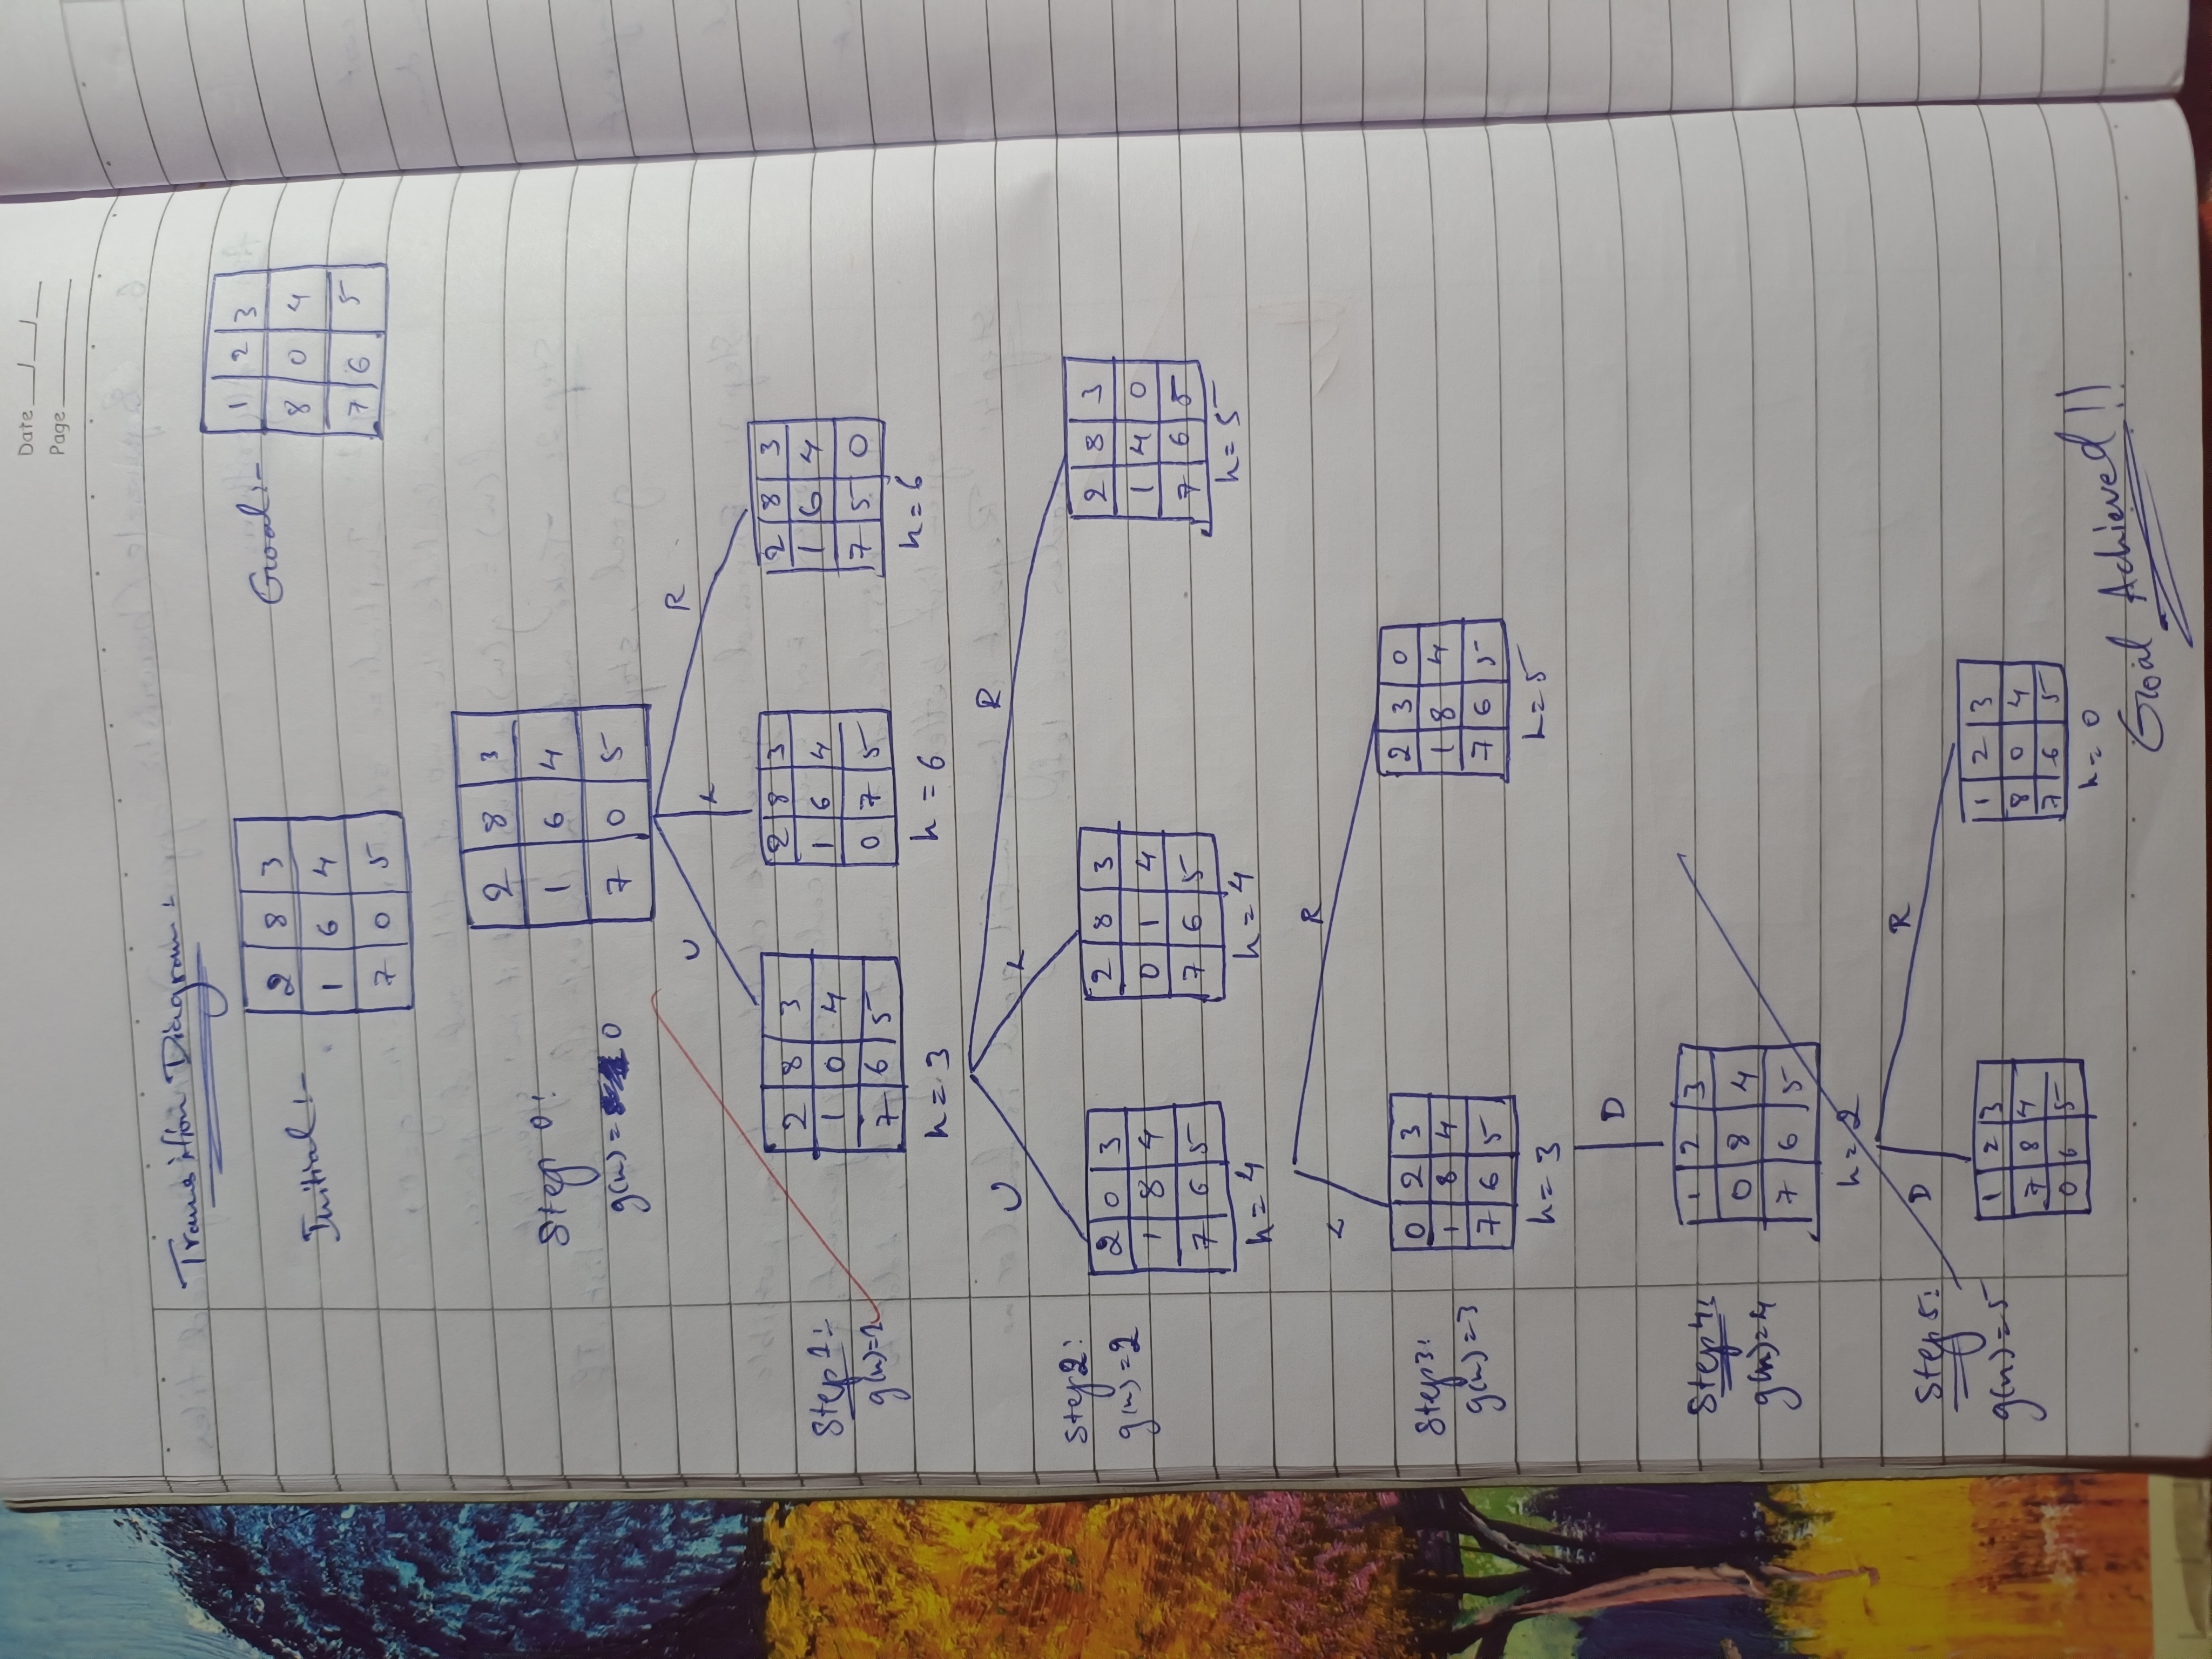 Date
Page
Transition Diagram:
Initial :-
2 8 3
1 6 4
7 0 5
Goal :-
1 2 3
8 0 4
7 6 5
Step 0:
g(n) = 0
2 8 3
1 6 4
7 0 5
U L R
Step 1:
g(n)=1
2 8 3
1 0 4
7 6 5
h = 3
2 8 3
1 6 4
0 7 5
h = 6
2 8 3
1 6 4
7 5 0
h = 6
U L R
Step 2:
g(n) = 2
2 0 3
1 8 4
7 6 5
h = 4
2 8 3
0 1 4
7 6 5
h = 4
2 8 3
1 4 0
7 6 5
h = 5
L R
Step 3:
g(n) = 3
0 2 3
1 8 4
7 6 5
h = 3
2 3 0
1 8 4
7 6 5
h = 5
D
Step 4:
g(n) = 4
1 2 3
0 8 4
7 6 5
h = 2
D R
Step 5:
g(n) = 5
1 2 3
7 8 4
0 6 5
1 2 3
8 0 4
7 6 5
h = 0
Goal Achieved!!